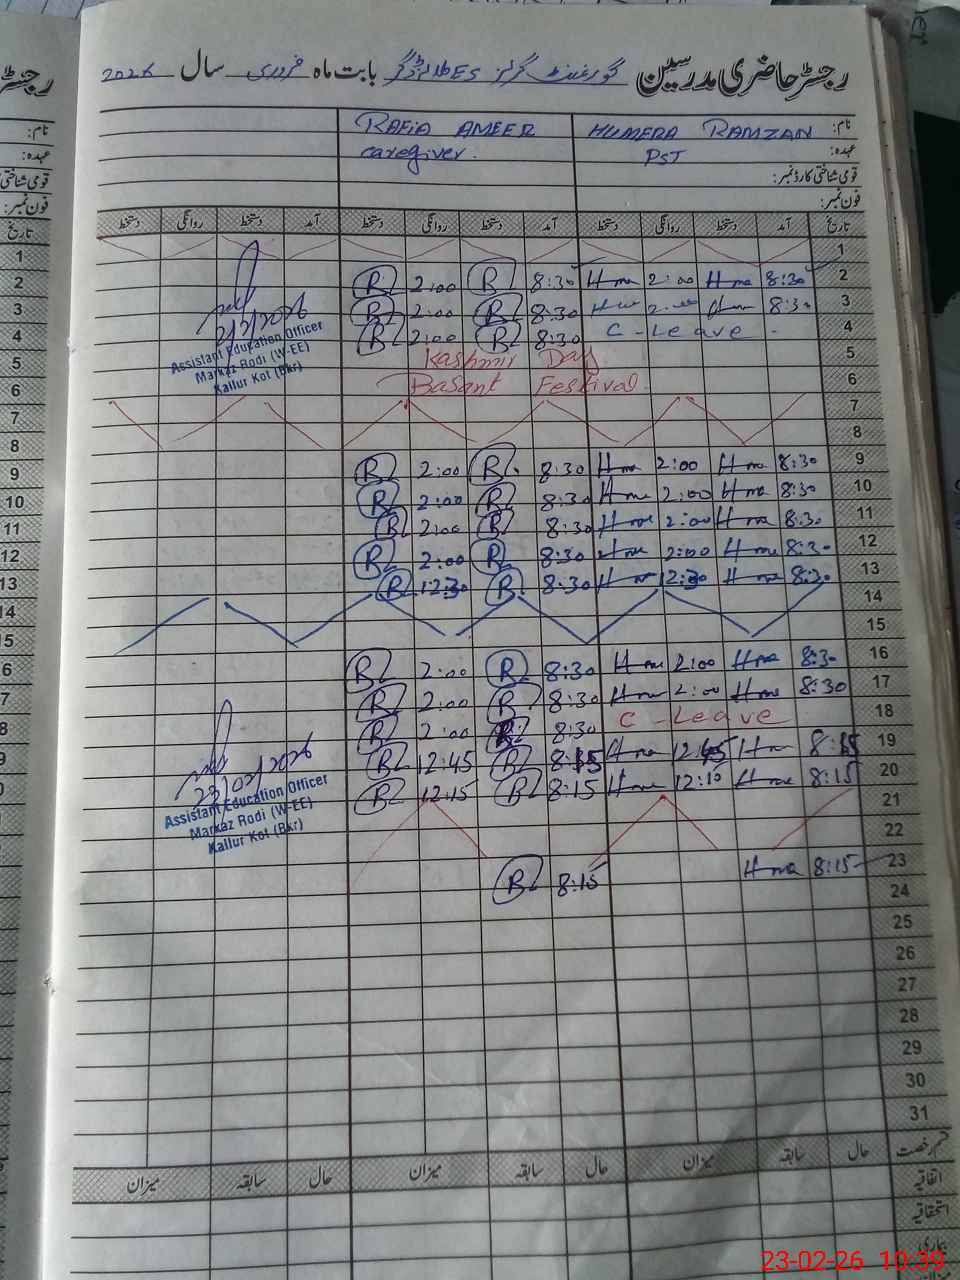 رجسٹر حاضری مدرسین گورنمنٹ گرلز ES بابت ماہ فروری سال 2026
نام: HUMERA RAMZAN RAFIA AMEER
عہدہ: PST caregiver.
قومی شناختی کارڈ نمبر:
فون نمبر:
تاریخ آمد دستخط روانگی دستخط آمد دستخط روانگی دستخط آمد دستخط روانگی دستخط
1
2 8:30 Hma 2:00 Hma 8:30 R 2:00 R
3 8:30 Hma 2:00 Hma 8:30 R 2:00 R
4 C-Leave 8:30 R 2:00 R
2/2/2026
Assistant Education Officer
Markaz Rodi (W-EE)
Kallur Kot (Bkr)
5 Kashmir Day
6 Basant Festival.
7
8
9 8:30 Hma 2:00 Hma 8:30 R 2:00 R
10 8:30 Hma 2:00 Hma 8:30 R 2:00 R
11 8:30 Hma 2:00 Hma 8:30 R 2:00 R
12 8:30 Hma 2:00 Hma 8:30 R 2:00 R
13 8:30 Hma 12:30 Hma 8:30 R 12:30 R
14
15
16 8:30 Hma 2:00 Hma 8:30 R 2:00 R
17 8:30 Hma 2:00 Hma 8:30 R 2:00 R
18 C-Leave 8:30 R 2:00 R
19 8:15 Hma 12:45 Hma 8:15 R 12:45 R
20 8:15 Hma 12:15 Hma 8:15 R 12:15 R
23/02/2026
Assistant Education Officer
Markaz Rodi (W-EE)
Kallur Kot (Bkr)
21
22
23 8:15 Hma 8:15 R
24
25
26
27
28
29
30
31
قسم رخصت حال سابقہ میزان حال سابقہ میزان حال سابقہ میزان
اتفاقیہ
استحقاقیہ
بیماری
23-02-26 10:39
رجسٹر
نام:
عہدہ:
قومی شناختی
فون نمبر:
تاریخ
1
2
3
4
5
6
7
8
9
10
11
12
13
14